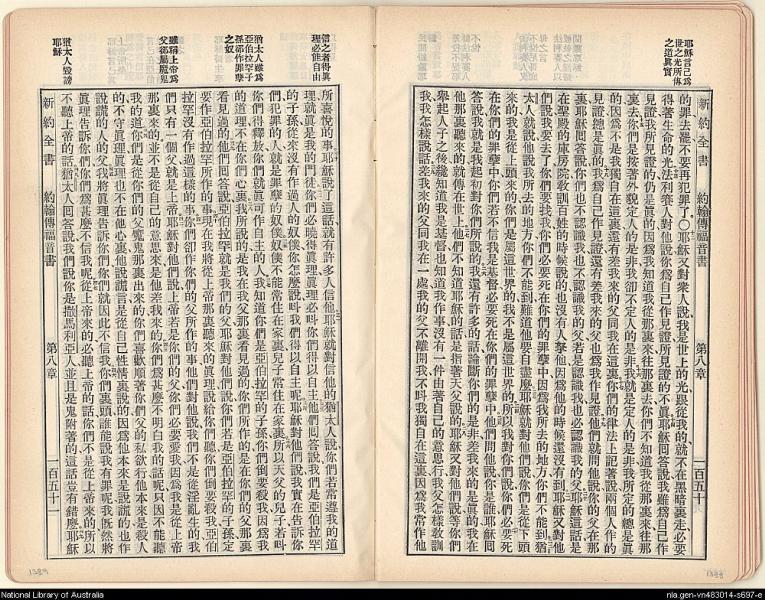 耶穌言己爲
世之光所傳
之道眞實
新約全書 約翰傳福音書 第八章 一百五十
的罪去罷不要再犯罪了〇耶穌又對衆人說我是世上的光跟從我的就不在黑暗裏走必要
得著生命的光法利賽人對他說你爲自己作見證你所見證的不眞耶穌回答說我雖爲自己作
見證我所見證的仍是眞的因爲我知道我從那裏來往那裏去你們不知道我從那裏來往那
裏去你們是按著外貌定人的是非我却不定人的是非我就是定人的是非我所定的總是眞
的因爲不是我獨自在這裏還有差我來的父同我在這裏你們的律法上記著說兩個人作的
見證總是眞的我爲自己作見證還有差我來的父也爲我作見證他們就問他說你的父在那
裏耶穌回答說你們也不認識我也不認識我的父若是認識我也必認識我的父耶穌這話是
在聖殿的庫房院敎訓百姓的時候說的也沒有人拏他因爲他的時候還沒有到耶穌又對他
們說我要去了你們要找我你們必要死在你們的罪孽中因爲我所去的地方你們不能到猶
太人就說他說我所去的地方你們不能到難道他要自盡麽耶穌就對他們說你們是從下頭
來的我是從上頭來的你們是屬這世界的我不是屬這世界的所以我對你們說你們必要死
在你們的罪孽中你們若不信我是基督必要死在你們的罪孽中他們問他說你是誰耶穌回
答說我就是我起初對你們所說的我還有許多的話論斷你們的是非差我來的是眞的我在
他那裏聽來的就傳在世上他們不知道耶穌的話是指著天父說的耶穌又對他們說等你們
舉起人子之後纔知道我是基督也知道我作事沒有一件由著自己的意思行我父怎樣敎訓
我我怎樣說話差我來的父同我在一處我的父不離開我不呌我獨自在這裏因爲我常作他
信之者得眞
理必能自由
猶太人雖爲
亞伯拉罕子
孫卻作罪孽
之奴
雖稱上帝爲
父卻屬魔鬼
猶太人毀謗
耶穌
所喜悅的事耶穌說了這話就有許多人信他耶穌就對信他的猶太人說你們若常遵我的道
理就眞是我的門徒你們必曉得眞理眞理必呌你們得以自主他們回答說我們是亞伯拉罕
的子孫從來沒有作過人的奴僕你怎麽說呌我們得以自主呢耶穌對他們說我實在告訴你
們犯罪的人就是罪孽的奴僕奴僕不能常住在家裏兒子常住在家裏所以天父的兒子若呌
你們得釋放你們就眞可作自主的人我知道你們是亞伯拉罕的子孫你們倒要殺我因爲我
的道理不在你們心裏我所說的是我在我父那裏看見過的你們所作的是在你們的父那裏
看見過的他們回答說亞伯拉罕就是我們的父耶穌對他們說你們若是亞伯拉罕的子孫定
要作亞伯拉罕所作的事現在我將從上帝那裏聽來的眞理說給你們聽你們倒要殺我亞伯
拉罕沒有作過這樣的事你們卻作你們的父所作的事他們對他說我們不是從淫亂生的我
們只有一個父就是上帝耶穌對他們說上帝若是你們的父你們必要愛我因爲我是從上帝
那裏來的並不是從自己的意思來是他差我來的你們爲甚麽不明白我的話呢只因不能聽
我的道你們是從你們的父魔鬼那裏出來的你們喜歡順著你們父的私欲行他本來是殺人
的不守眞理眞理也不在他心裏他說謊言是從自己性情裏說的因爲他本來是說謊的也作
說謊的人的父我將眞理告訴你們你們就因此不信我你們裏頭誰能說我有罪呢我旣然將
眞理告訴你們你們爲甚麽不信我呢從上帝來的必聽上帝的話你們不是從上帝來的所以
不聽上帝的話猶太人回答說我們說你是撒馬利亞人並且是鬼附著的這話豈有錯麽耶穌
新約全書 約翰傳福音書 第八章 一百五十一
1389
1388
National Library of Australia
nla.gen-vn483014-s697-e